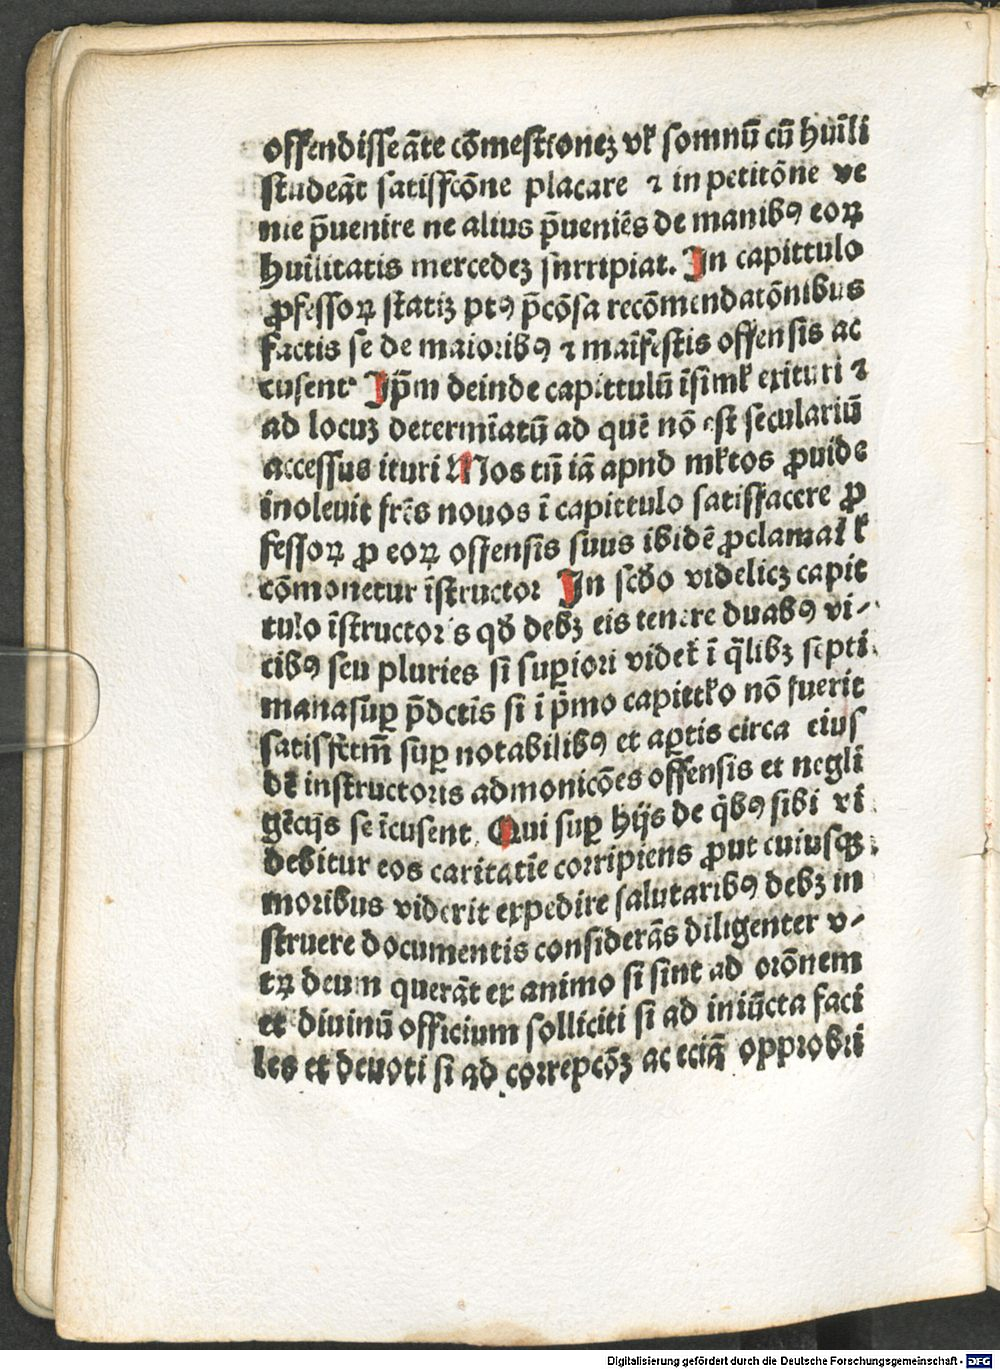 offendisse āte cōmestionez vł somnū cū huīli
studeāt satisfcōne placare ⁊ in petitōne ve
nie p̄uenire ne alius p̄ueniēs de manibꝰ eoꝝ
huīlitatis mercedeʒ surripiat. In capittulo
ꝓfessoꝝ statiʒ ptꝰ p̄cōsa recōmendatōnibus
factis se de maioribꝰ ⁊ maīfestis offensis ac
cusent Ip̄m deinde capittulū īsimł exituri ⁊
ad locuʒ determīatū ad quē nō est seculariū
accessus ituri Nos tn̄ iā apud młtos ꝓuide
inoleuit frēs nouos ī capittulo satisfacere ꝓ
fessoꝝ ꝓ eoꝝ offensis suus ibidē ꝓclamat̄ ł
cōmonetur īstructor In scd̄o videlicʒ capit
tulo īstructoris qd̄ debʒ eis tenere duabꝰ vi-
cibꝰ seu pluries si suꝑiori videt̄ ī q̄libʒ septi
mana suꝑ p̄dctīs si ī p̄mo capittło nō fuerit
satisfctm̄ suꝑ notabilibꝰ et aꝑtis circa eius
dē instructoris admonicōes offensis et negli
gēcijs se īcusent. Qui suꝑ hijs de q̄bꝰ sibi vī
debitur eos caritatīe corripiens ꝓut cuiusqꝫ
moribus viderit expedire salutaribꝰ debʒ in
struere documentis considerās diligenter v-
tꝝ deum querāt ex animo si sint ad orōnem
et diuinū officium solliciti si ad iniūcta faci
les et deuoti si ad correpcōʒ ac eciā opprobri
Digitalisierung gefördert durch die Deutsche Forschungsgemeinschaft - DFG